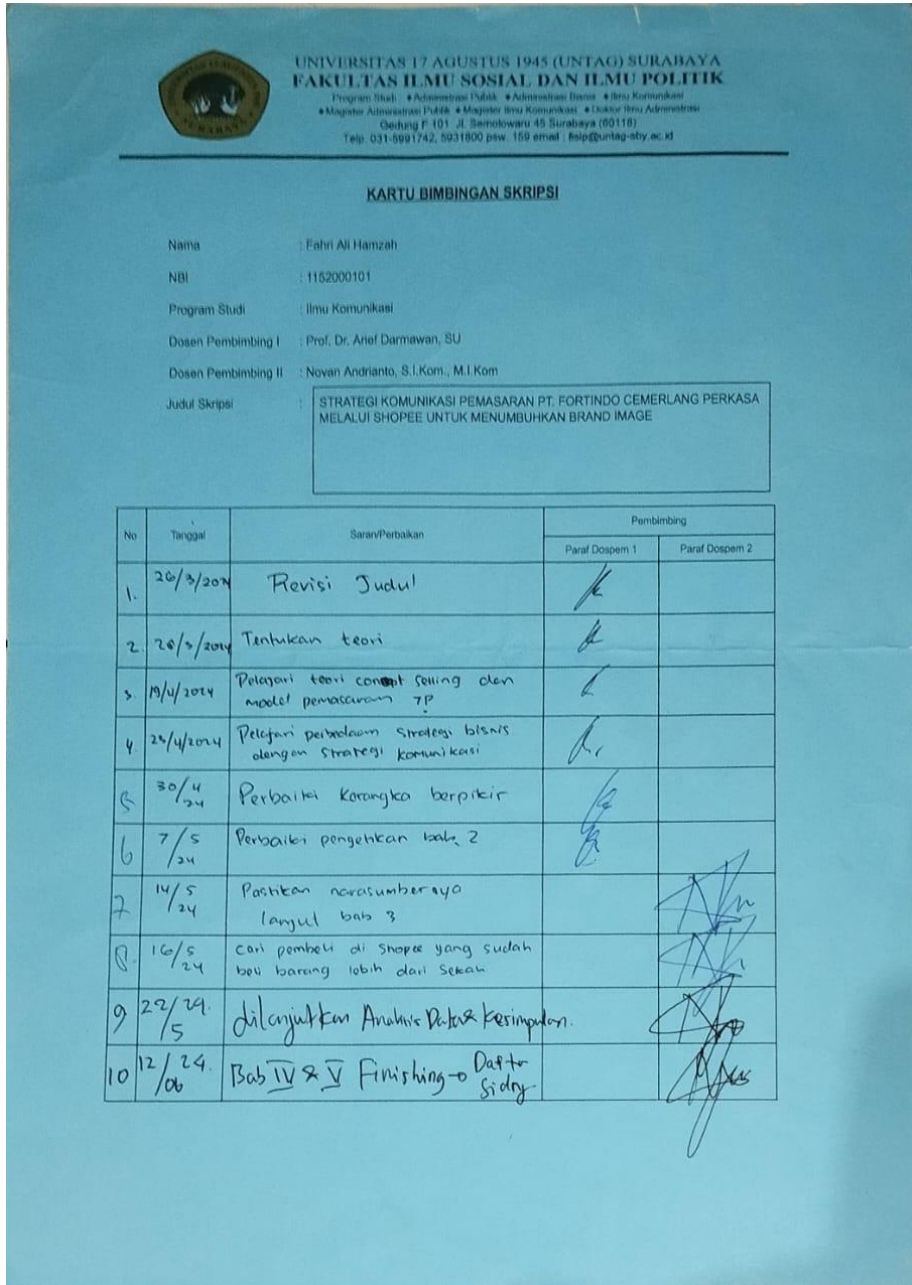 UNIVERSITAS 17 AGUSTUS 1945 (UNTAG) SURABAYA
FAKULTAS ILMU SOSIAL DAN ILMU POLITIK
Program Studi : • Administrasi Publik • Administrasi Bisnis • Ilmu Komunikasi
• Magister Administrasi Publik • Magister Ilmu Komunikasi • Doktor Ilmu Administrasi
Gedung F 101 Jl. Semolowaru 45 Surabaya (60118)
Telp. 031-5991742, 5931800 psw. 159 email : fisip@untag-sby.ac.id
SURABAYA
KARTU BIMBINGAN SKRIPSI
Nama : Fahri Ali Hamzah
NBI : 1152000101
Program Studi : Ilmu Komunikasi
Dosen Pembimbing I : Prof. Dr. Arief Darmawan, SU
Dosen Pembimbing II : Novan Andrianto, S.I.Kom., M.I.Kom
Judul Skripsi : STRATEGI KOMUNIKASI PEMASARAN PT. FORTINDO CEMERLANG PERKASA
MELALUI SHOPEE UNTUK MENUMBUHKAN BRAND IMAGE
No Tanggal Saran/Perbaikan Pembimbing
Paraf Dospem 1 Paraf Dospem 2
1. 26/3/2024 Revisi Judul
2. 28/3/2024 Tentukan teori
3. 19/4/2024 Pelajari teori selling dan
model pemasaran 7P
4. 25/4/2024 Pelajari perbedaan strategi bisnis
dengan strategi komunikasi
5 30/4/24 Perbaiki Kerangka berpikir
6 7/5/24 Perbaiki pengetikan bab 2
7 14/5/24 Pastikan narasumbernya
lanjut bab 3
8. 16/5/24 cari pembeli di shopee yang sudah
beli barang lebih dari sekali
9 22/5 dilanjutkan Analisis Data & Kesimpulan.
10 12/06 24. Bab IV & V Finishing → Daftar
Sidang